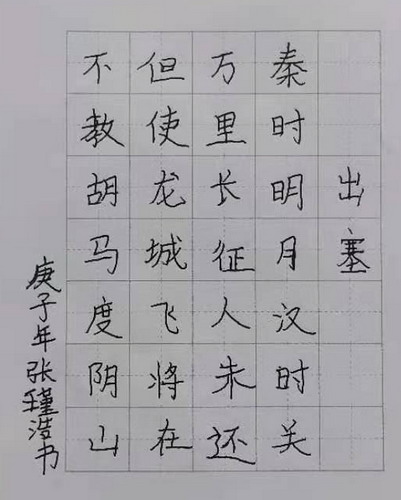 出塞
秦时明月汉时关
万里长征人未还
但使龙城飞将在
不教胡马度阴山
庚子年张瑾浩书